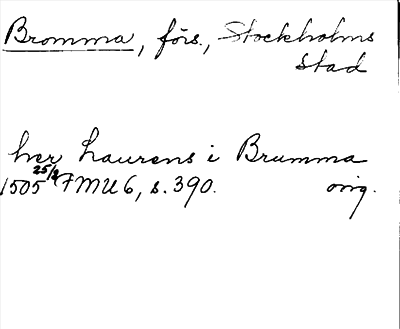 Bromma, förs., Stockholms
Stad
her Laurens i Brumma
1505 25/2 FMU 6, s. 390. orig.